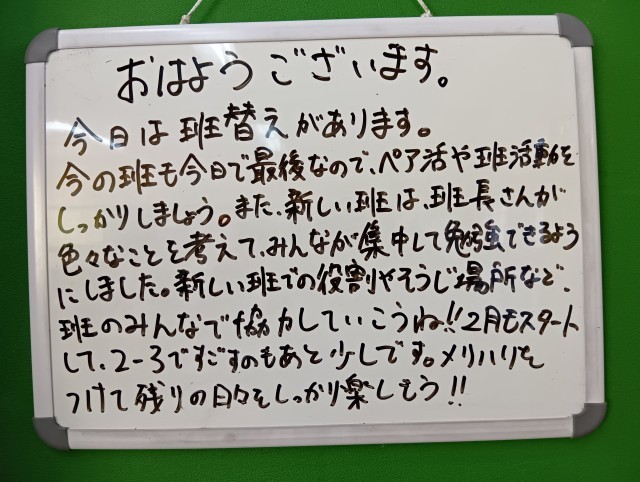 おはようございます。
今日は班替えがあります。
今の班も今日で最後なので、ペア活や班活動を
しっかりしましょう。また、新しい班は、班長さんが
色々なことを考えて、みんなが集中して勉強できるよう
にしました。新しい班での役割やそうじ場所など、
班のみんなで協力していこうね!!2月もスタート
して、2-3ですごすのもあと少しです。メリハリを
つけて残りの日々をしっかり楽しもう!!